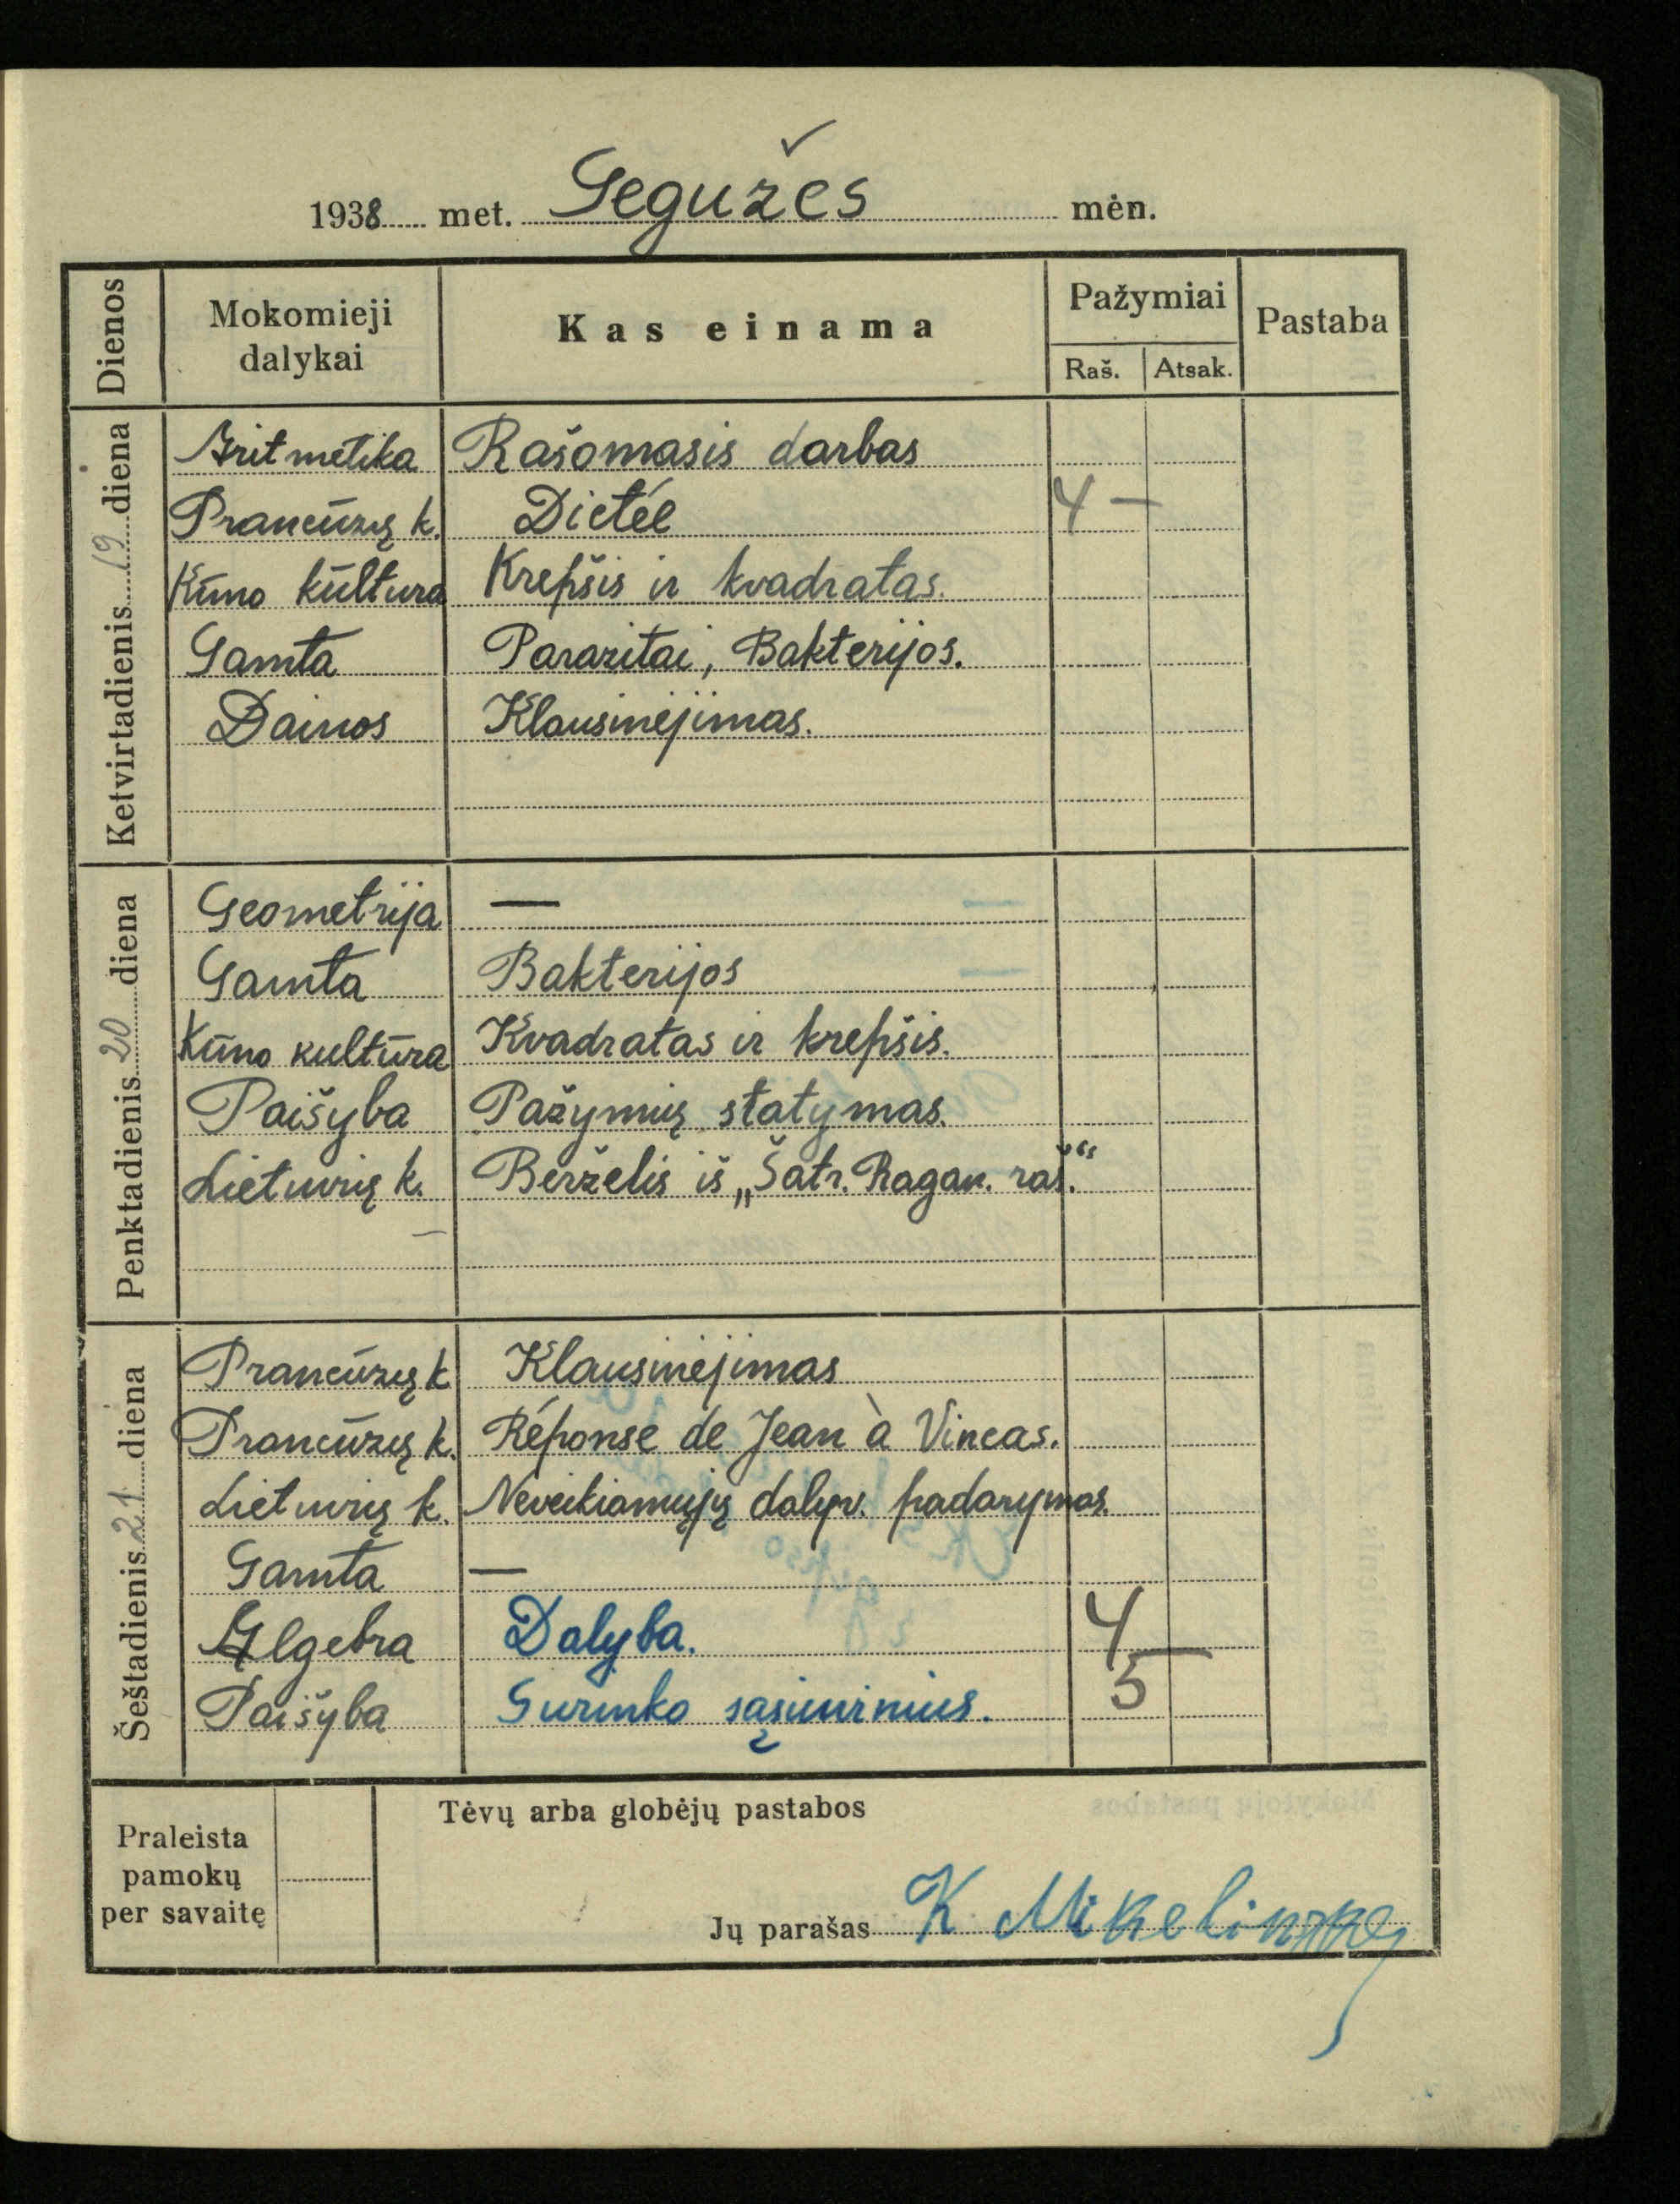 1938 met. Gegužės mėn.
Dienos Mokomieji dalykai Kas einama Pažymiai Pastaba
Raš. Atsak.
Ketvirtadienis 19 diena
Aritmetika Rašomasis darbas
Prancūzų k. Dictée 4 —
Kūno kūltura Krepšis ir kvadratas.
Gamta Parazitai, Bakterijos.
Dainos Klausinėjimas.
Penktadienis 20 diena
Geometrija —
Gamta Bakterijos
Kūno kultūra Kvadratas ir krepšis.
Paišyba Pažymių statymas.
Lietuvių k. Berželis iš „Šatr. Ragan. raš.“
Šeštadienis 21 diena
Prancūzų k. Klausinėjimas
Prancūzų k. Réponse de Jean à Vincas.
Lietuvių k. Neveikiamųjų dalyv. padarymas.
Gamta —
Algebra Dalyba. 4 —
Paišyba Surinko sąsiuvinius. 5
Praleista pamokų per savaitę
Tėvų arba globėjų pastabos
Jų parašas K